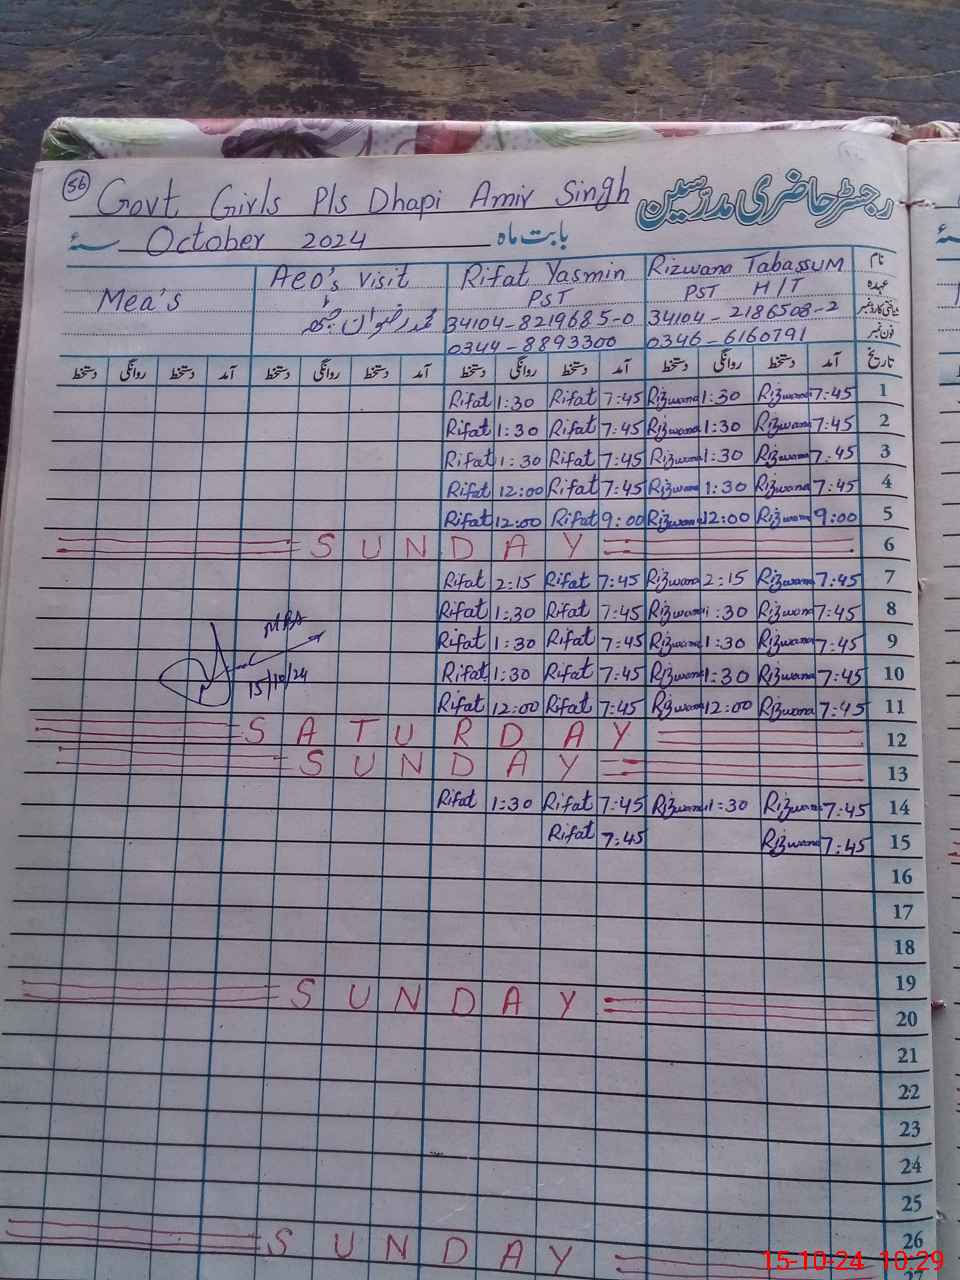 56
Govt Girls Pls Dhapi Amir Singh رجسٹر حاضری مدرسین
بابت ماہ October 2024 سنہ
نام Rizwana Tabassum Rifat Yasmin Aeo's visit Mea's
عہدہ PST H/T PST
شناختی کارڈ نمبر 34104-2186508-2 34104-8219685-0 محمد رضوان
فون نمبر 0346-6160791 0344-8893300
تاریخ آمد دستخط روانگی دستخط آمد دستخط روانگی دستخط آمد دستخط روانگی دستخط آمد دستخط روانگی دستخط
Rifat 1:30 Rifat 7:45 Rizwana 1:30 Rizwana 7:45 1
Rifat 1:30 Rifat 7:45 Rizwana 1:30 Rizwana 7:45 2
Rifat 1:30 Rifat 7:45 Rizwana 1:30 Rizwana 7:45 3
Rifat 12:00 Rifat 7:45 Rizwana 1:30 Rizwana 7:45 4
Rifat 12:00 Rifat 9:00 Rizwana 12:00 Rizwana 9:00 5
SUNDAY 6
Rifat 2:15 Rifat 7:45 Rizwana 2:15 Rizwana 7:45 7
Rifat 1:30 Rifat 7:45 Rizwana 1:30 Rizwana 7:45 8
Rifat 1:30 Rifat 7:45 Rizwana 1:30 Rizwana 7:45 9
Rifat 1:30 Rifat 7:45 Rizwana 1:30 Rizwana 7:45 10
15/10/24 Rifat 12:00 Rifat 7:45 Rizwana 12:00 Rizwana 7:45 11
SATURDAY 12
SUNDAY 13
Rifat 1:30 Rifat 7:45 Rizwana 1:30 Rizwana 7:45 14
Rifat 7:45 Rizwana 7:45 15
16
17
18
19
SUNDAY 20
21
22
23
24
25
SUNDAY 26
15-10-24 10:29